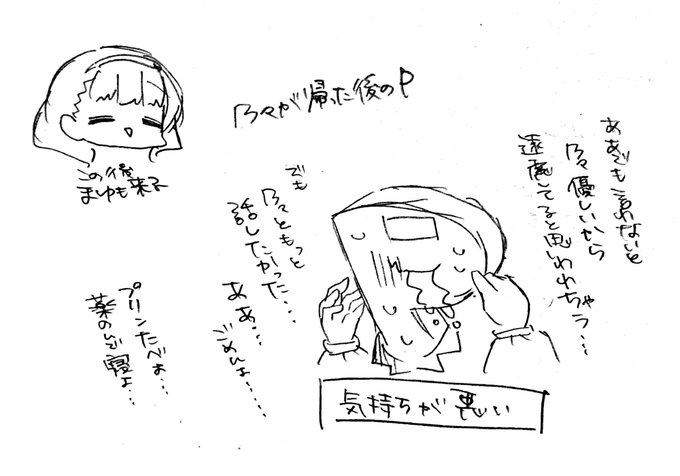 乃々が帰った後のP
この後
まゆも来る
ああでも言わないと
乃々優しいから
遠慮してると思われちゃう…
でも
乃々ともっと
話したかった……
ああ…
ごめんよ……
プリンたべよ……
薬のんで寝よ…
気持ちが悪い